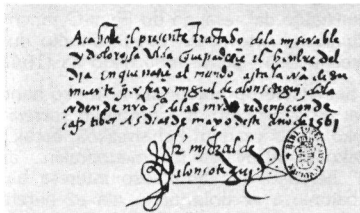 Acabose el presente Tractado dela miserable
y dolorosa vida que padesce el hombre del
dia in que nasce al mundo asta la ora de su
muerte por fray miguel de alonsotegui dela
orden de nra sa delas mrds redempcion de
captibos A dias de mayo deste año de 1561
fr miguel de
alonsotegui